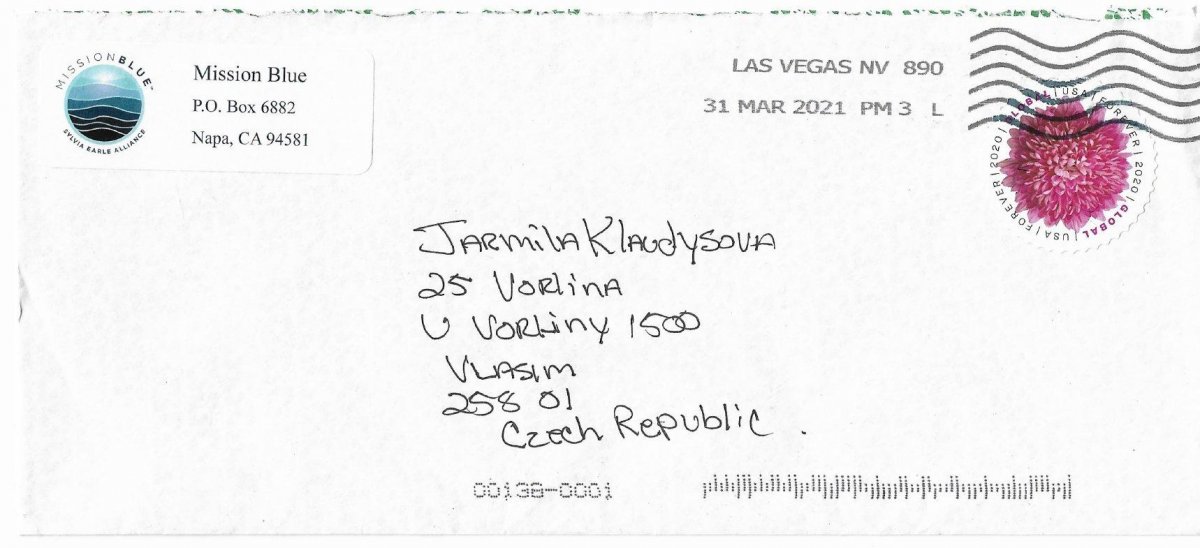 MISSION BLUE™
SYLVIA EARLE ALLIANCE
Mission Blue
P.O. Box 6882
Napa, CA 94581
LAS VEGAS NV 890
31 MAR 2021 PM 3 L
GLOBAL | USA | FOREVER | 2020 | GLOBAL | USA | FOREVER | 2020 |
Jarmila Klaudysova
25 Vorlina
U Vorliny 1500
Vlasim
258 01
Czech Republic .
00138-0001